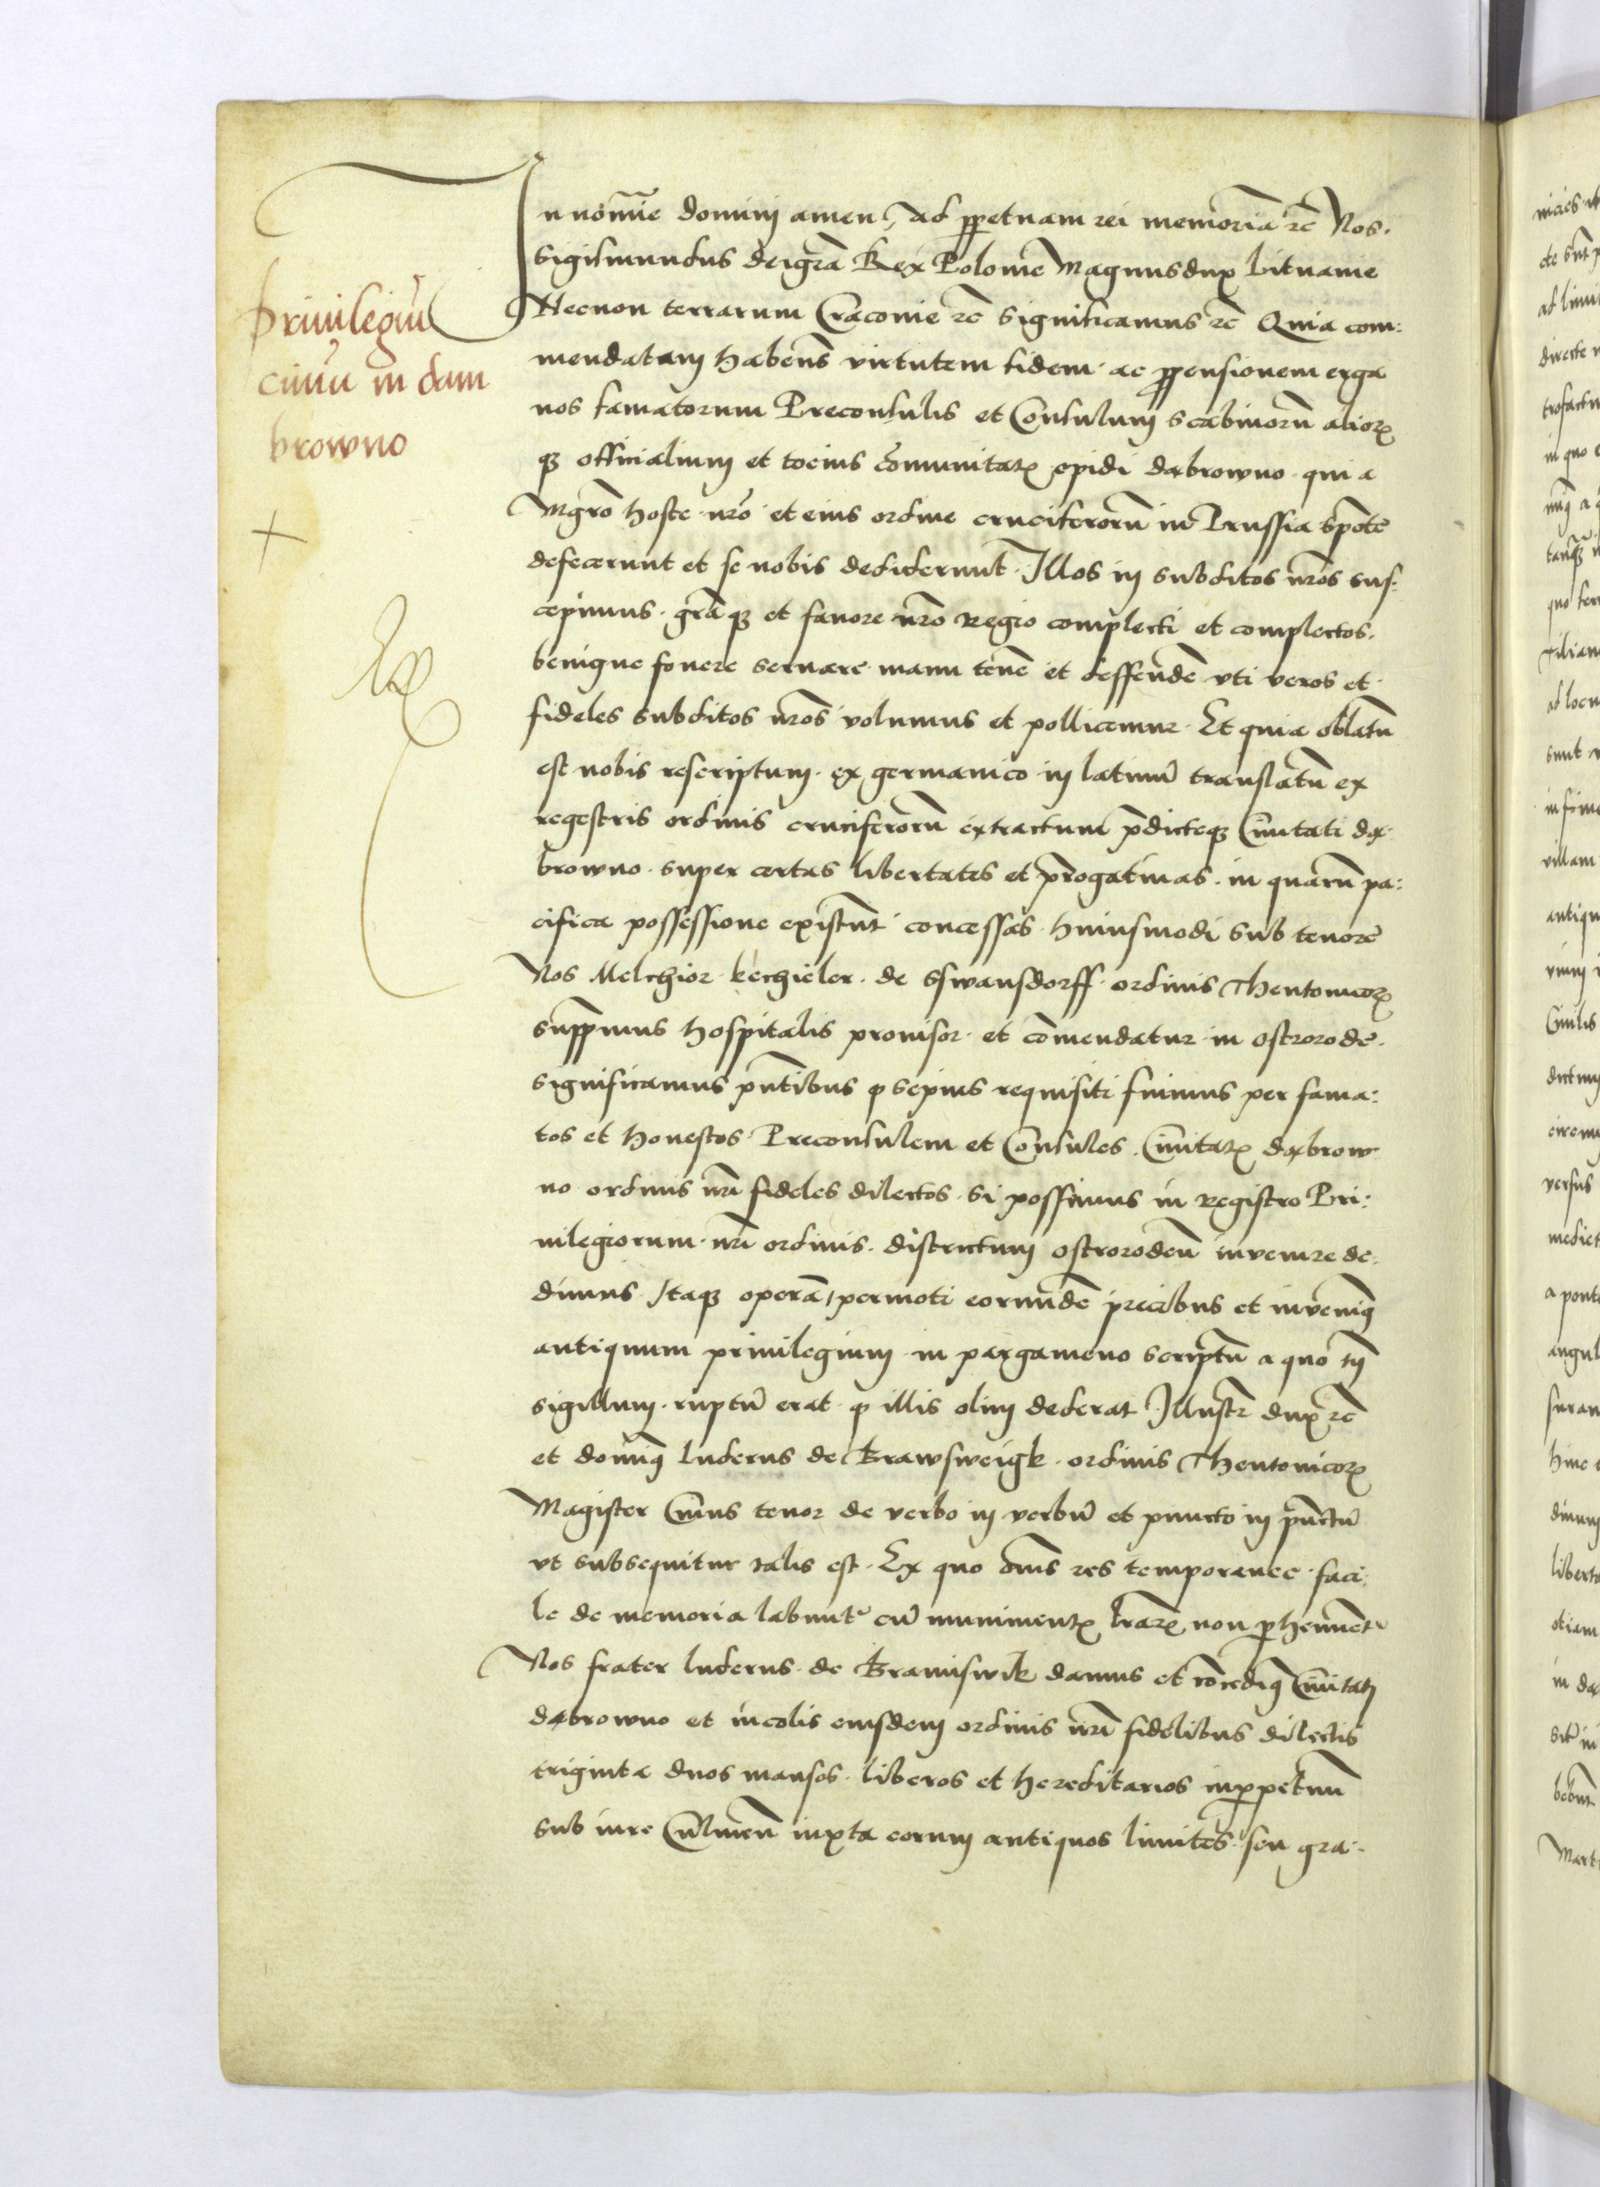 Priuilegiũ
ciuiũ in dam
browno
In nomĩe domini amen, Ad ppetuam rei memoriã ꝛc̃ Nos.
Sigismundus dei grã Rex Polonie Magnus dux Lituanie
Necnon terrarum Cracouie ꝛc̃ significamus ꝛc̃ Quia com:
mendatam habens virtutem fidem ac ppensionem erga
nos famatorum Preconsulis et Consulum Scabinorũ alioꝝ
qꝫ officialium et tocius cõmunitatꝭ opidi dąbrowno qui a
Mgrõ hoste nrõ et eius ordine cruciferorũ in Prussia spõte
defecerunt et se nobis dediderunt. Illos in subditos nrõs sus:
cepimus. grãqꝫ et fauore nrõ Regio complecti et complectos.
benigne fouere seruare manu tenẽ et deffendẽ vti veros et
fideles subditos nrõs volumus et pollicemur. Et quia oblatũ
est nobis rescriptum ex germanico in latinũ translatũ ex
regestris ordinis cruciferorũ extractum p̃dicteqꝫ Ciuitati dą
browno super certas libertates et p̃rogatiuas. in quarũ pa:
cifica possessione existunt concessas huiusmodi sub tenore
Nos Melchior kechieler de Sswansdorff ordinis Theutonicoꝝ
supp̃mus hospitalis prouisor et cõmendatur in ostrorode.
significamus p̃ntibus ꝙ sepius requisiti fuimus per fama:
tos et honestos Preconsulem et Consules Ciuitatꝭ dąbrow
no ordinis nrĩ fideles dilectos. si possimus in registro Pri:
uilegiorum nrĩ ordinis districtum ostrorodeñ inuenire de.
dimus Itaqꝫ operã, permoti eorundẽ precibus et inuenimꝰ
antiquum priuilegium in pargameno scriptũ a quo tñ
sigillum ruptũ erat ꝙ illis olim dederat Illustr̃ dux ꝛc̃
et dominꝰ luderus de Brawsweigk ordinis Theutonicoꝝ
Magister Cuius tenor de verbo in verbũ et puncto in punctũ
vt subsequitur talis est. Ex quo oms̃ res temporanee faci
le de memoria labunt᷑ cũ munimentꝭ lr̃aꝝ non p̱hennent᷑
Nos frater luderus de Braunswik damus et concedimꝰ Ciuitatj
dąbrowno et incolis eiusdem ordinis nrĩ fidelibus dilectis
triginta duos mansos liberos et hereditarios inꝑpetuũ
sub iure Culmeñ iuxta eorum antiquos limites seu gra: